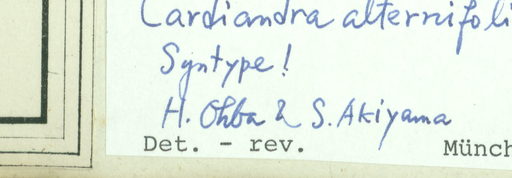 Cardiandra alternifoli
Syntype!
H. Ohba & S. Akiyama
Det. - rev. Münch